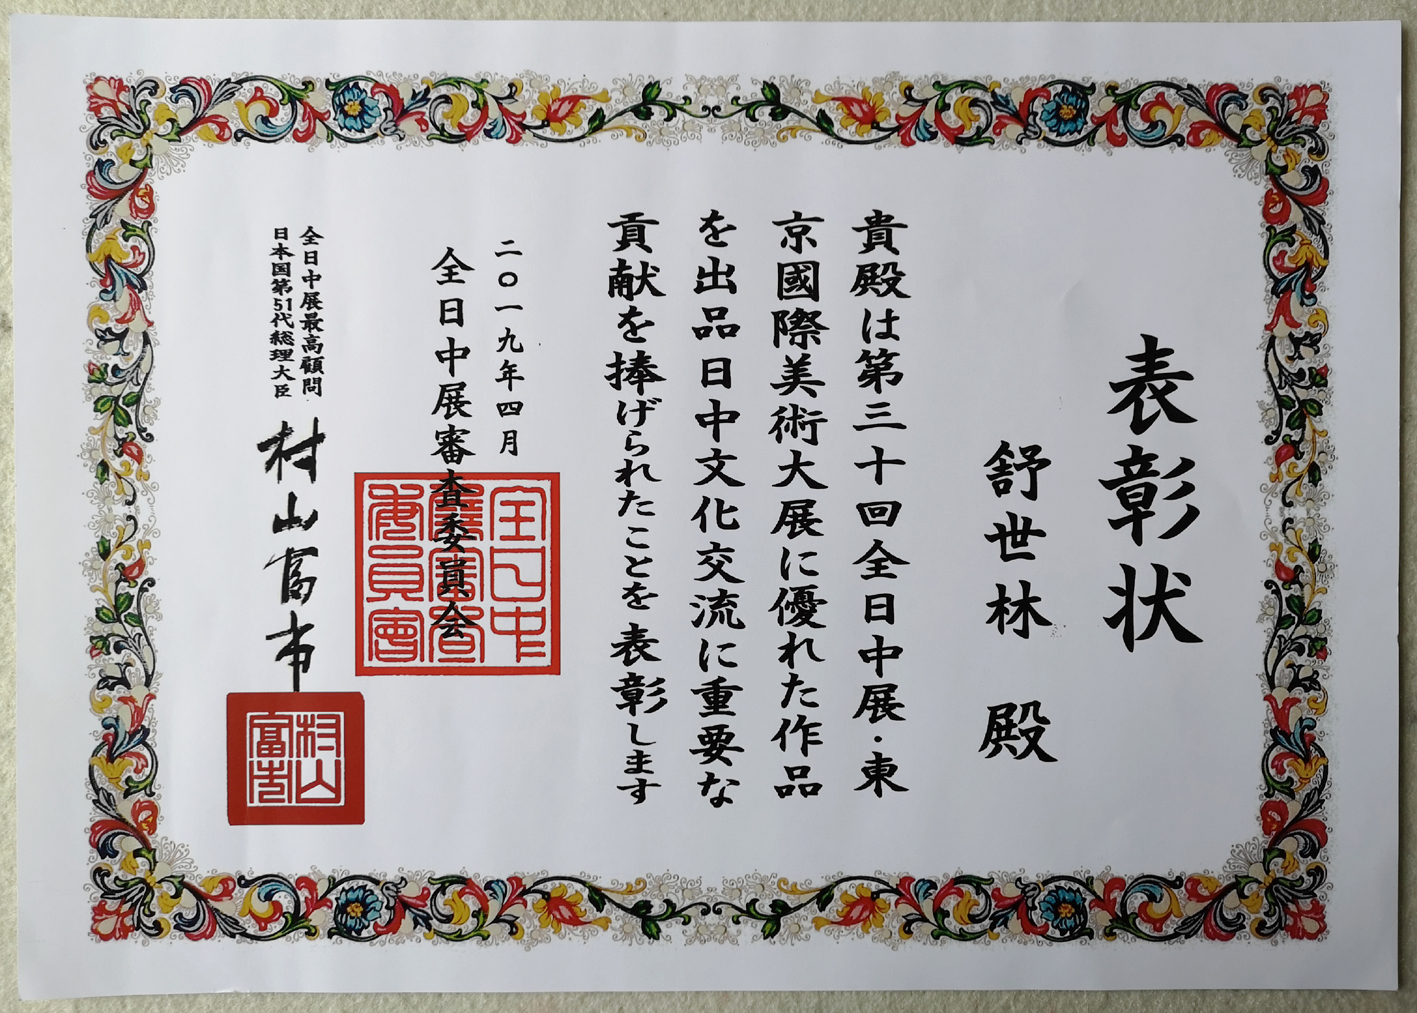 表彰状
舒世林 殿
貴殿は第三十回全日中展・東
京國際美術大展に優れた作品
を出品日中文化交流に重要な
貢献を捧げられたことを表彰します
二〇一九年四月
全日中展審査委員会
全日中展審査委員會
全日中展最高顧問
日本国第51代総理大臣
村山富市
村山富市